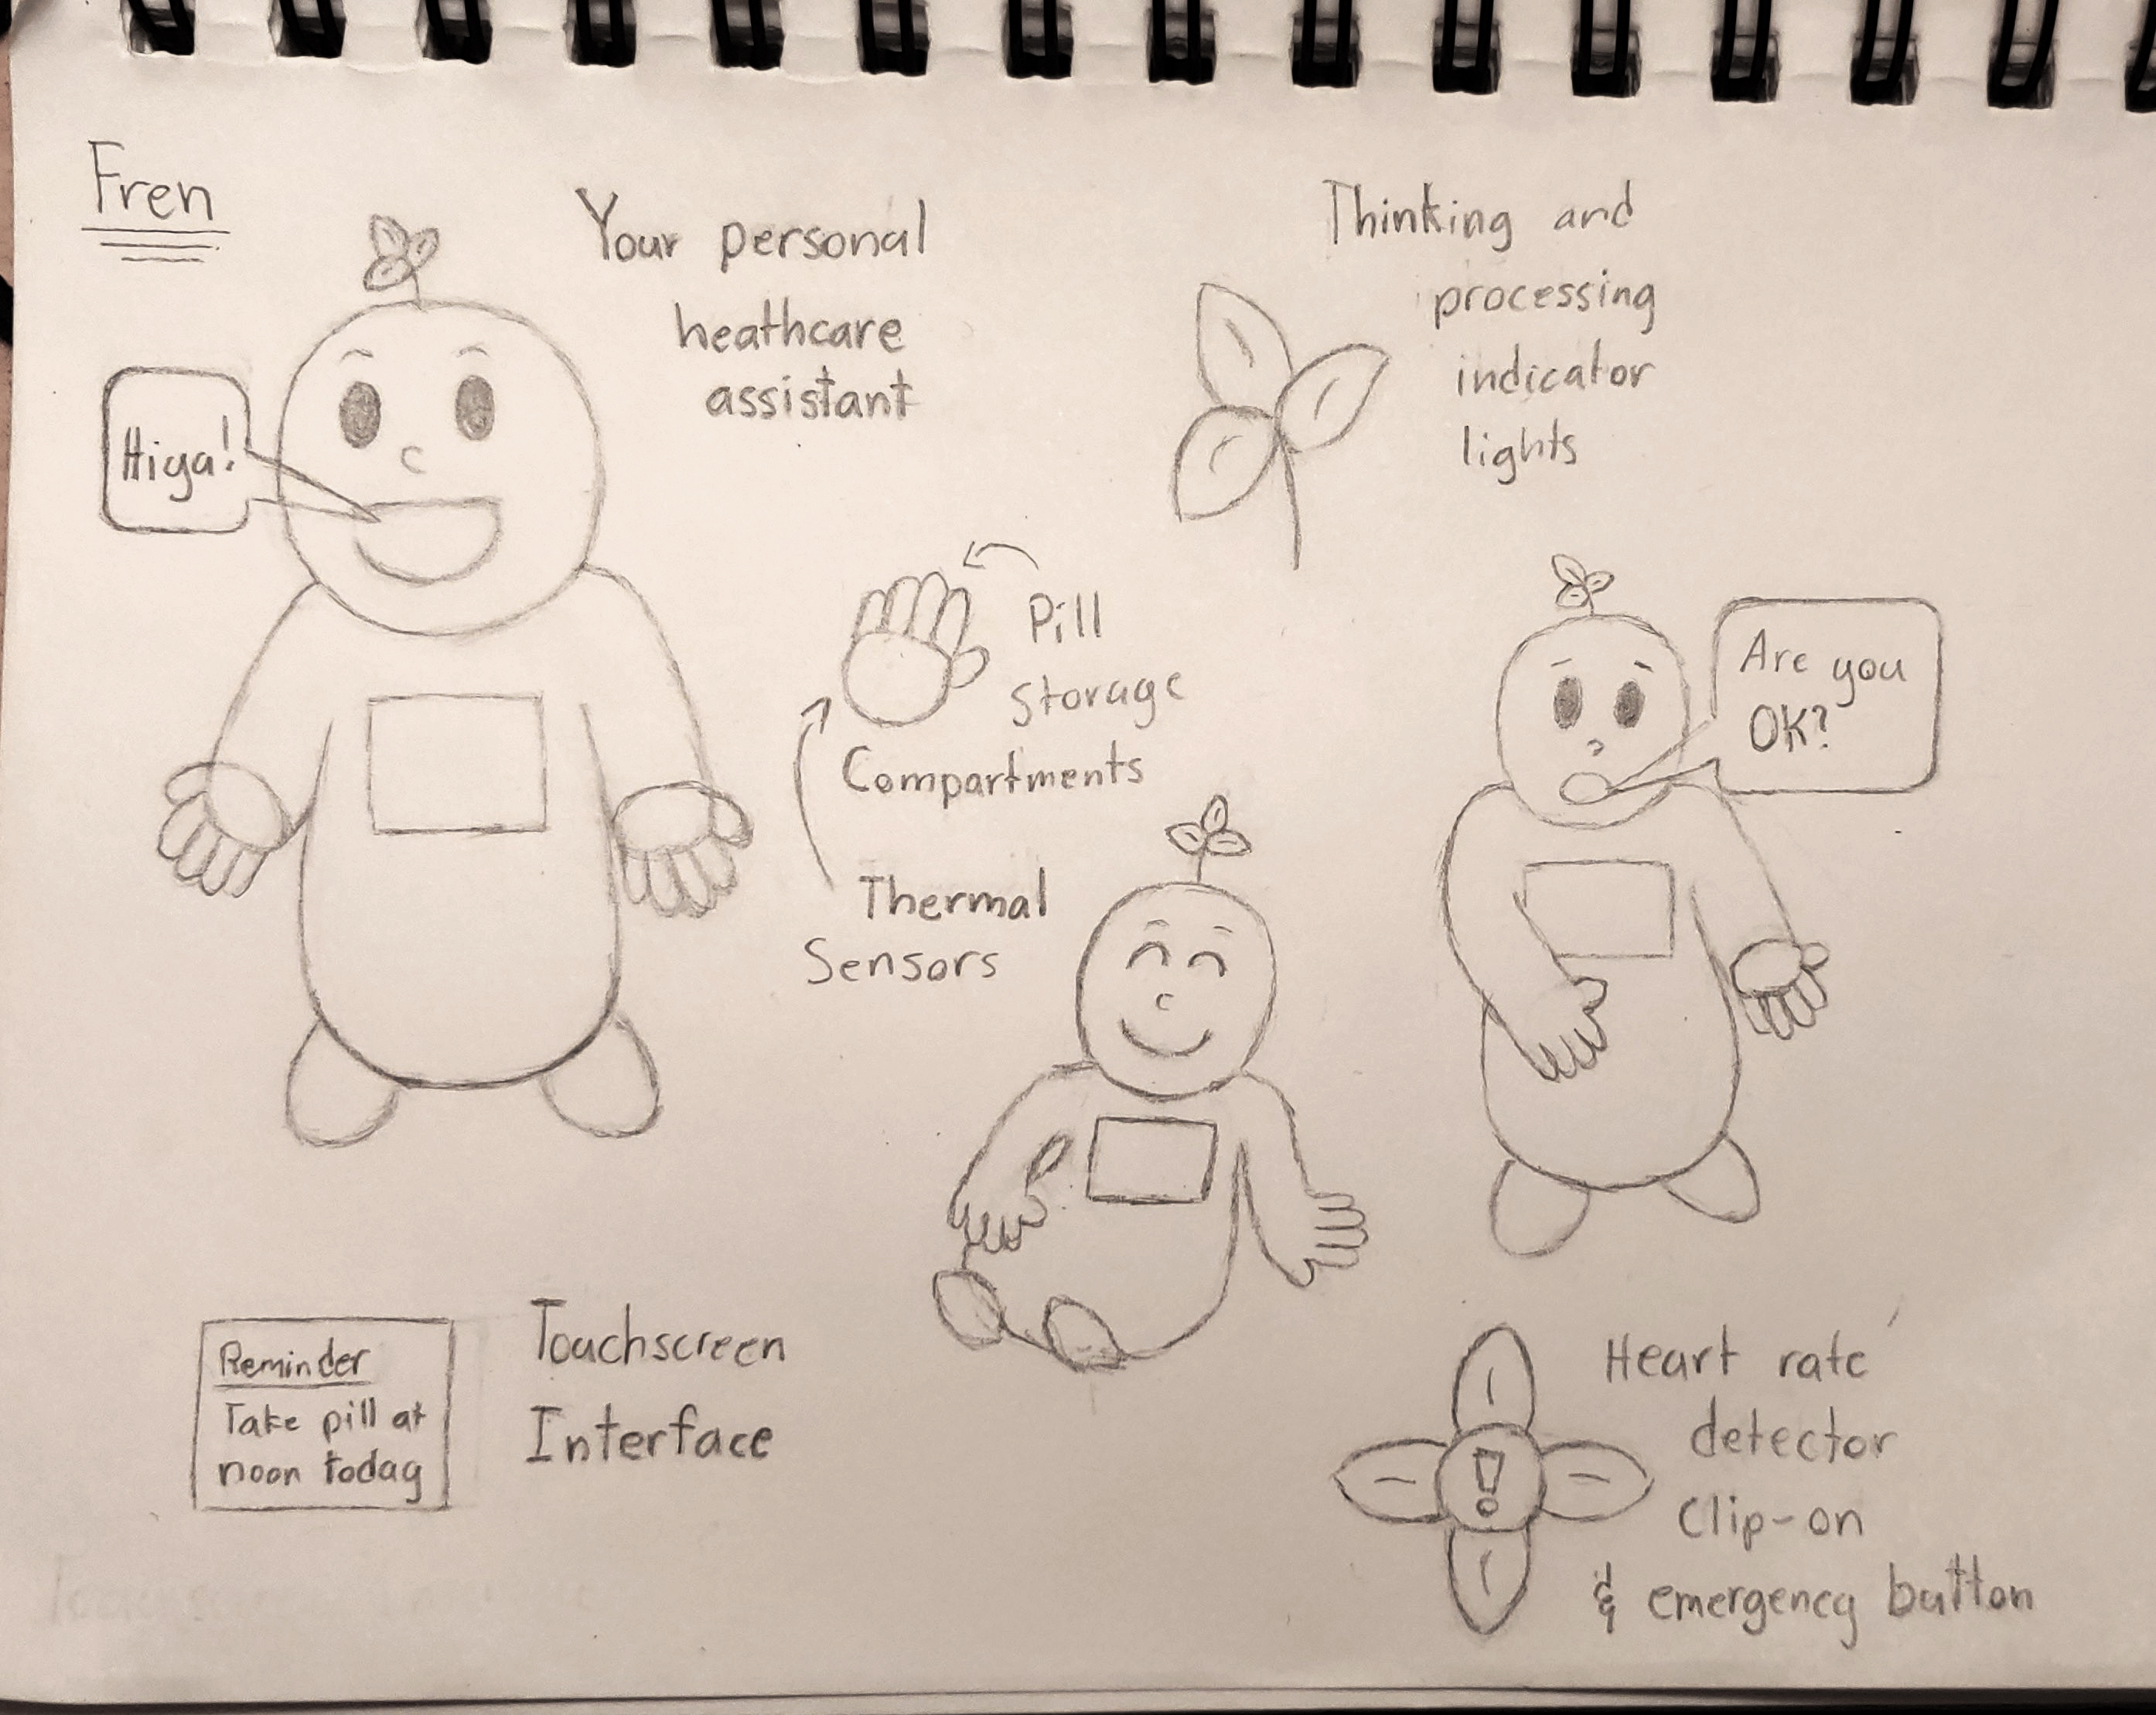 Fren
Your personal
heathcare
assistant
Thinking and
processing
indicator
lights
Hiya!
Pill
Storage
Compartments
Are you
OK?
Thermal
Sensors
Reminder
Take pill at
noon today
Touchscreen
Interface
Heart rate
detector
Clip-on
& emergency button